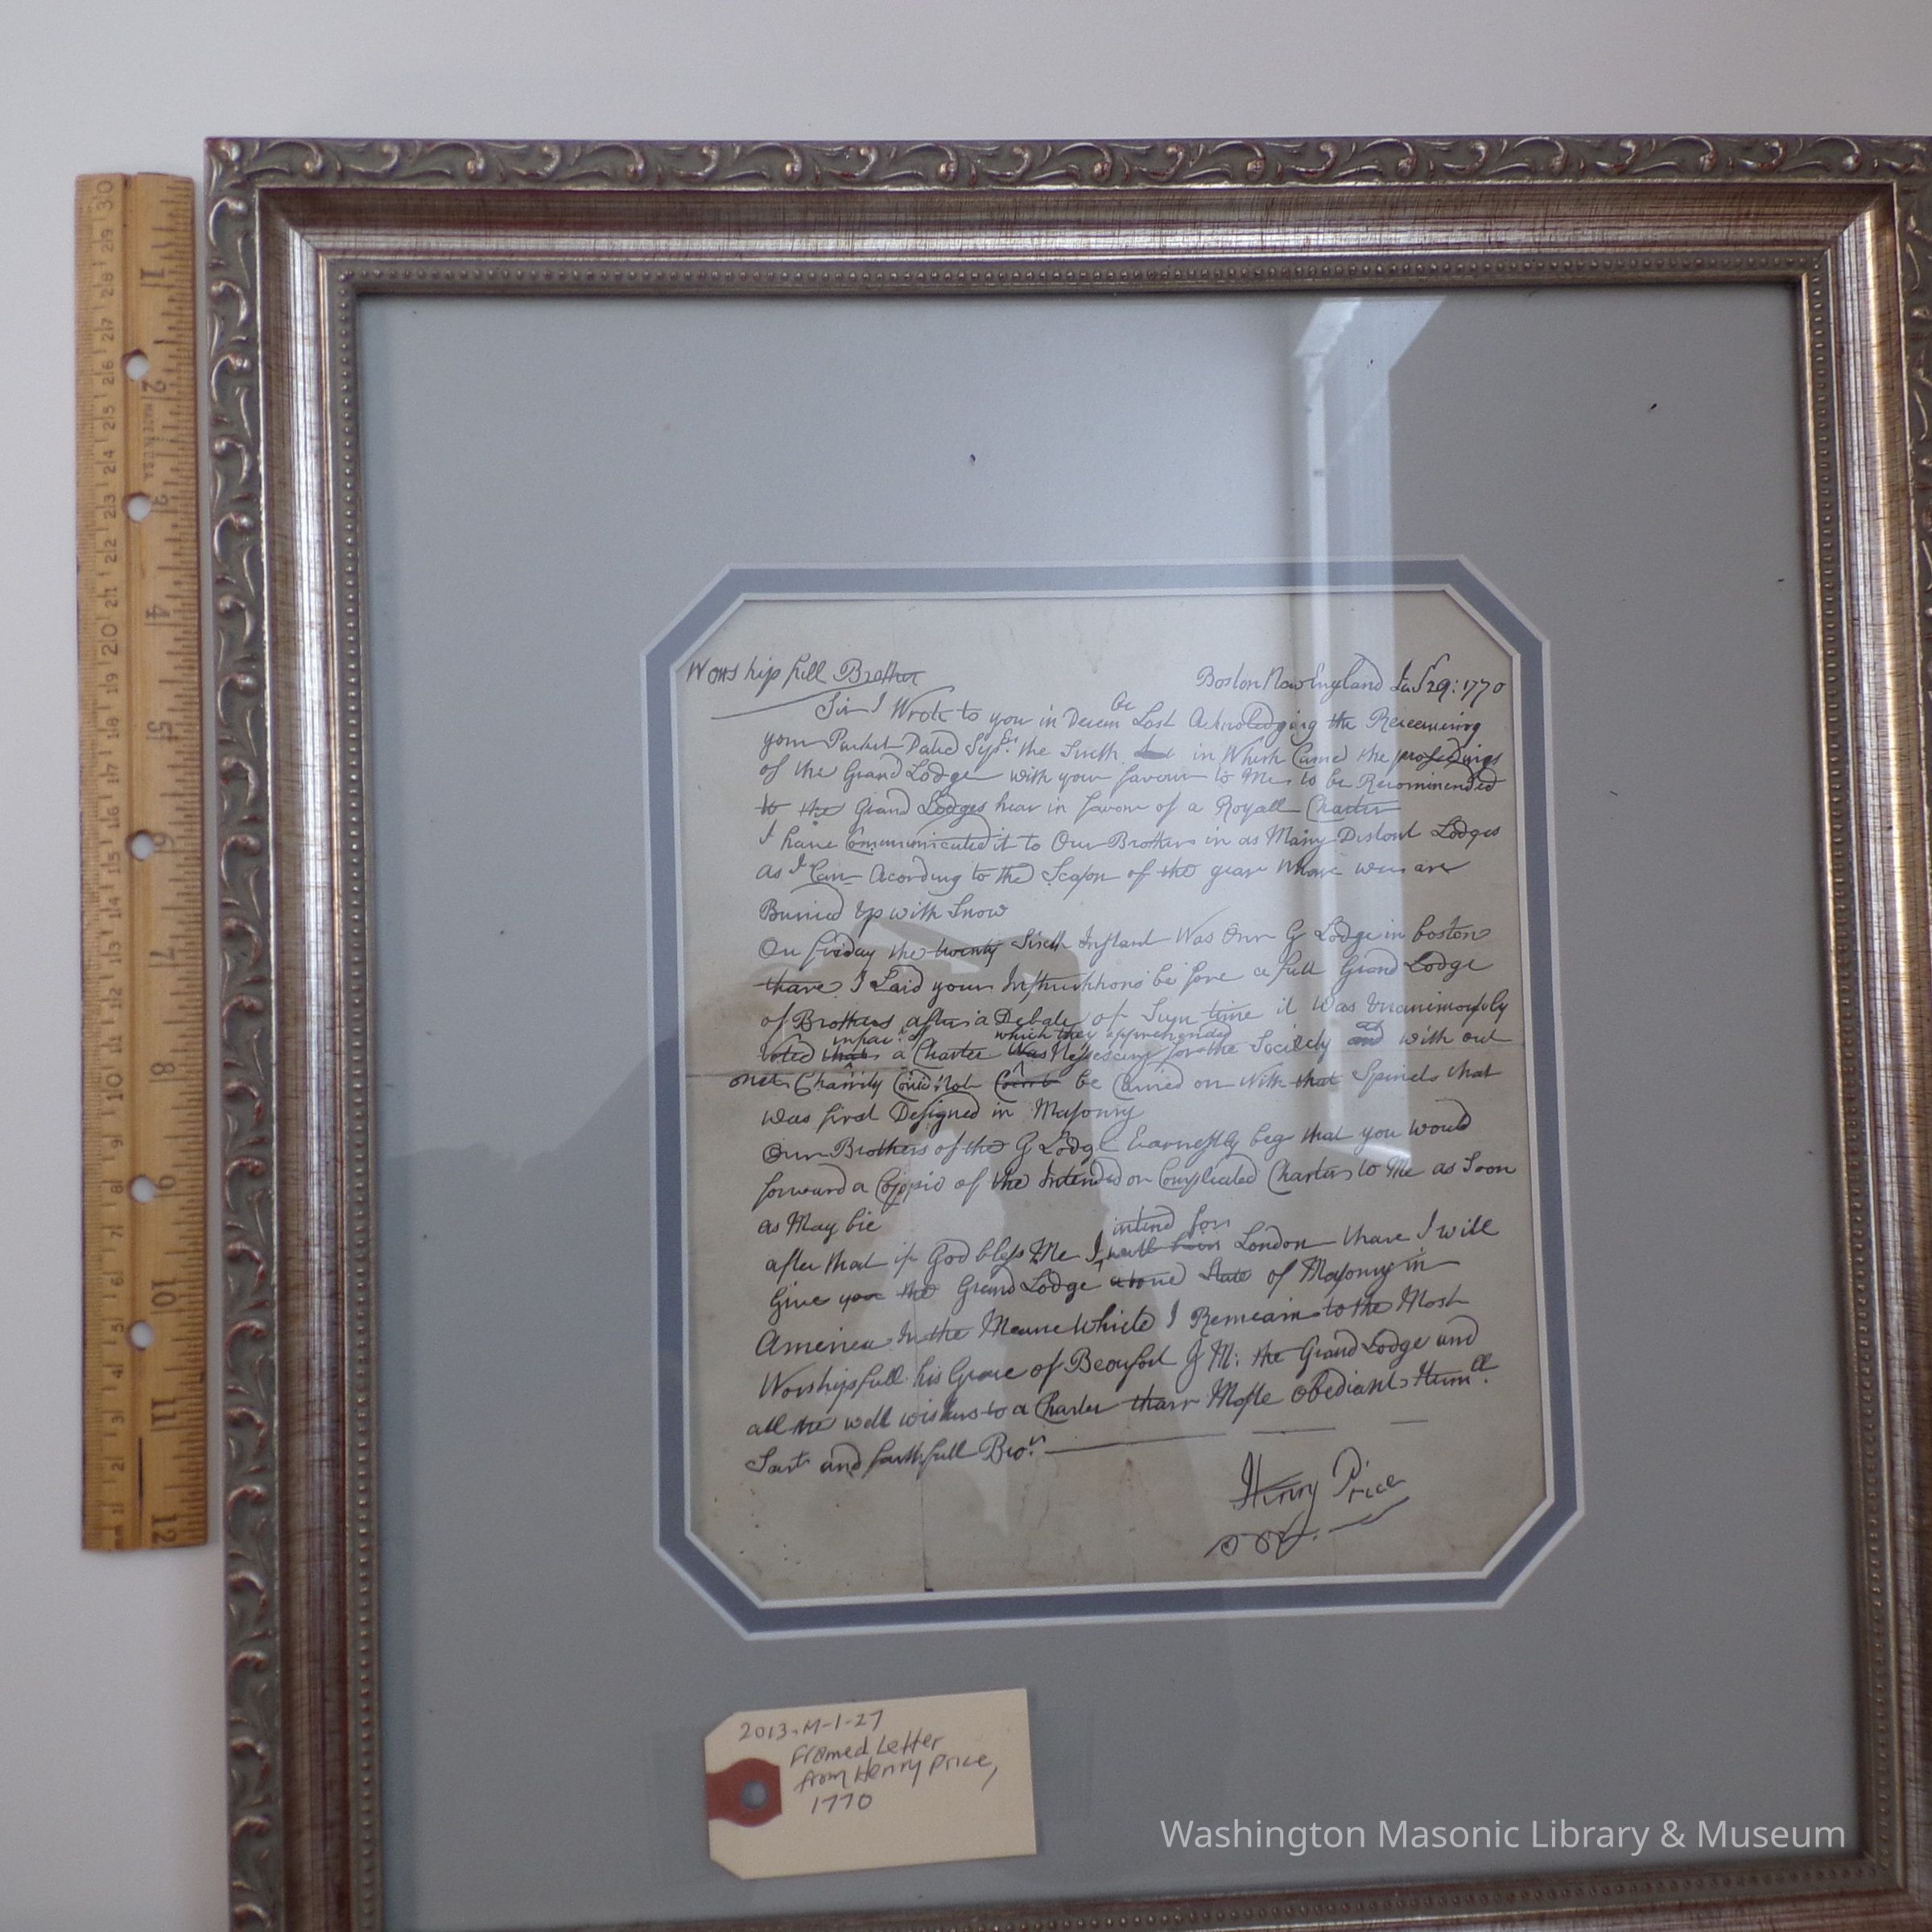 Worshipfull Brother
Boston New England Jan 29: 1770
Sir I Wrote to you in Decem be Last Acknoledging the Receeueing
your Packet Dated Sepbr. the Sixth in Which Came the proseedings
of the Grand Lodge with your favour to Me to be Recommended
to the Grand Lodges hear in favour of a Royall Charter
I have Communicated it to Our Brothers in as Many Distant Lodges
as I Can Acording to the Season of the year Whare wee are
Buried Up with Snow
On friday the twenty Sixth Instant Was Our G Lodge in boston
thare I Laid your Instructtions be fore a full Grand Lodge
of Brothers after a Debate of Sum time it Was Unanimously
voted that a Charter Was Nessescery for the Society and with out
which they apprehended
one Charrity Could Not be Caried on with that Spirids that
was first Designed in Masonry
Our Brothers of the G Lodge Earnestly beg that you would
forward a Coppie of the Intended or Compleated Charter to Me as Soon
as May bie
intend for
after that if God bless Me I London thare I will
Give you the Grand Lodge State of Masonry in
America In the Meane While I Remeain to the Most
Worshipfull his Grace of Beaufort G M: the Grand Lodge and
all the well wishers to a Charter thare Moste obediant Humll.
Sart and faithfull Bror.
Henry Price
2013-M-1-27
Framed Letter
from Henry Price,
1770
Washington Masonic Library & Museum